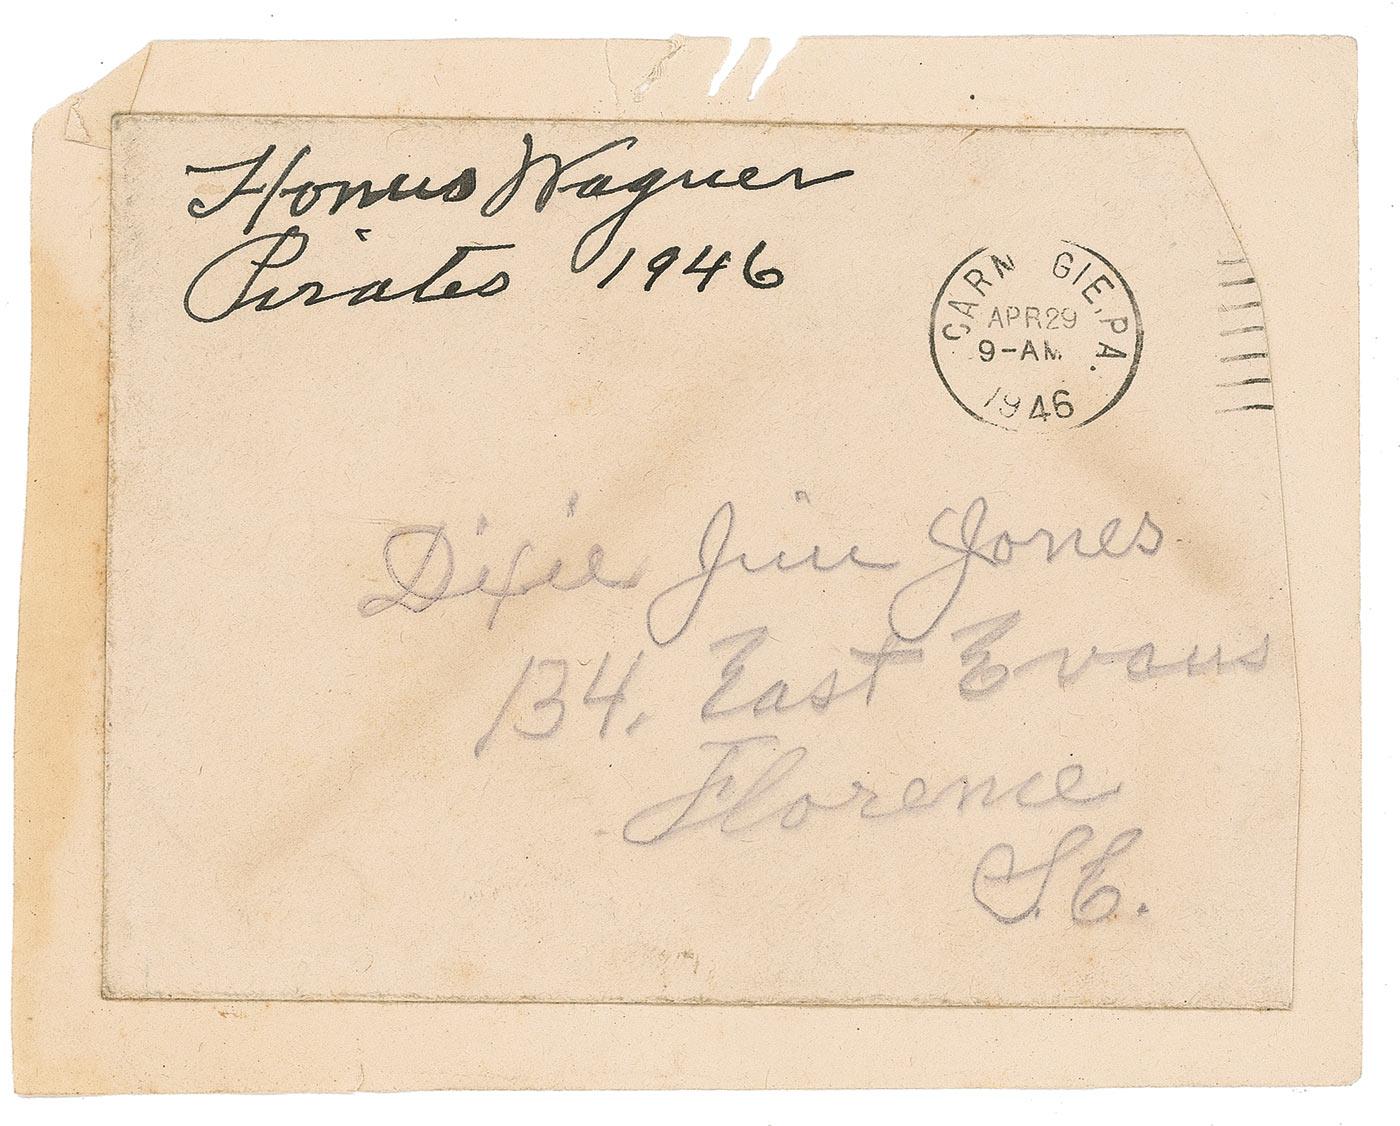 Honus Wagner
Pirates 1946
CARNEGIE, PA.
APR 29
9-AM
1946
Dixie Jim Jones
134, East Evans
Florence
S.C.